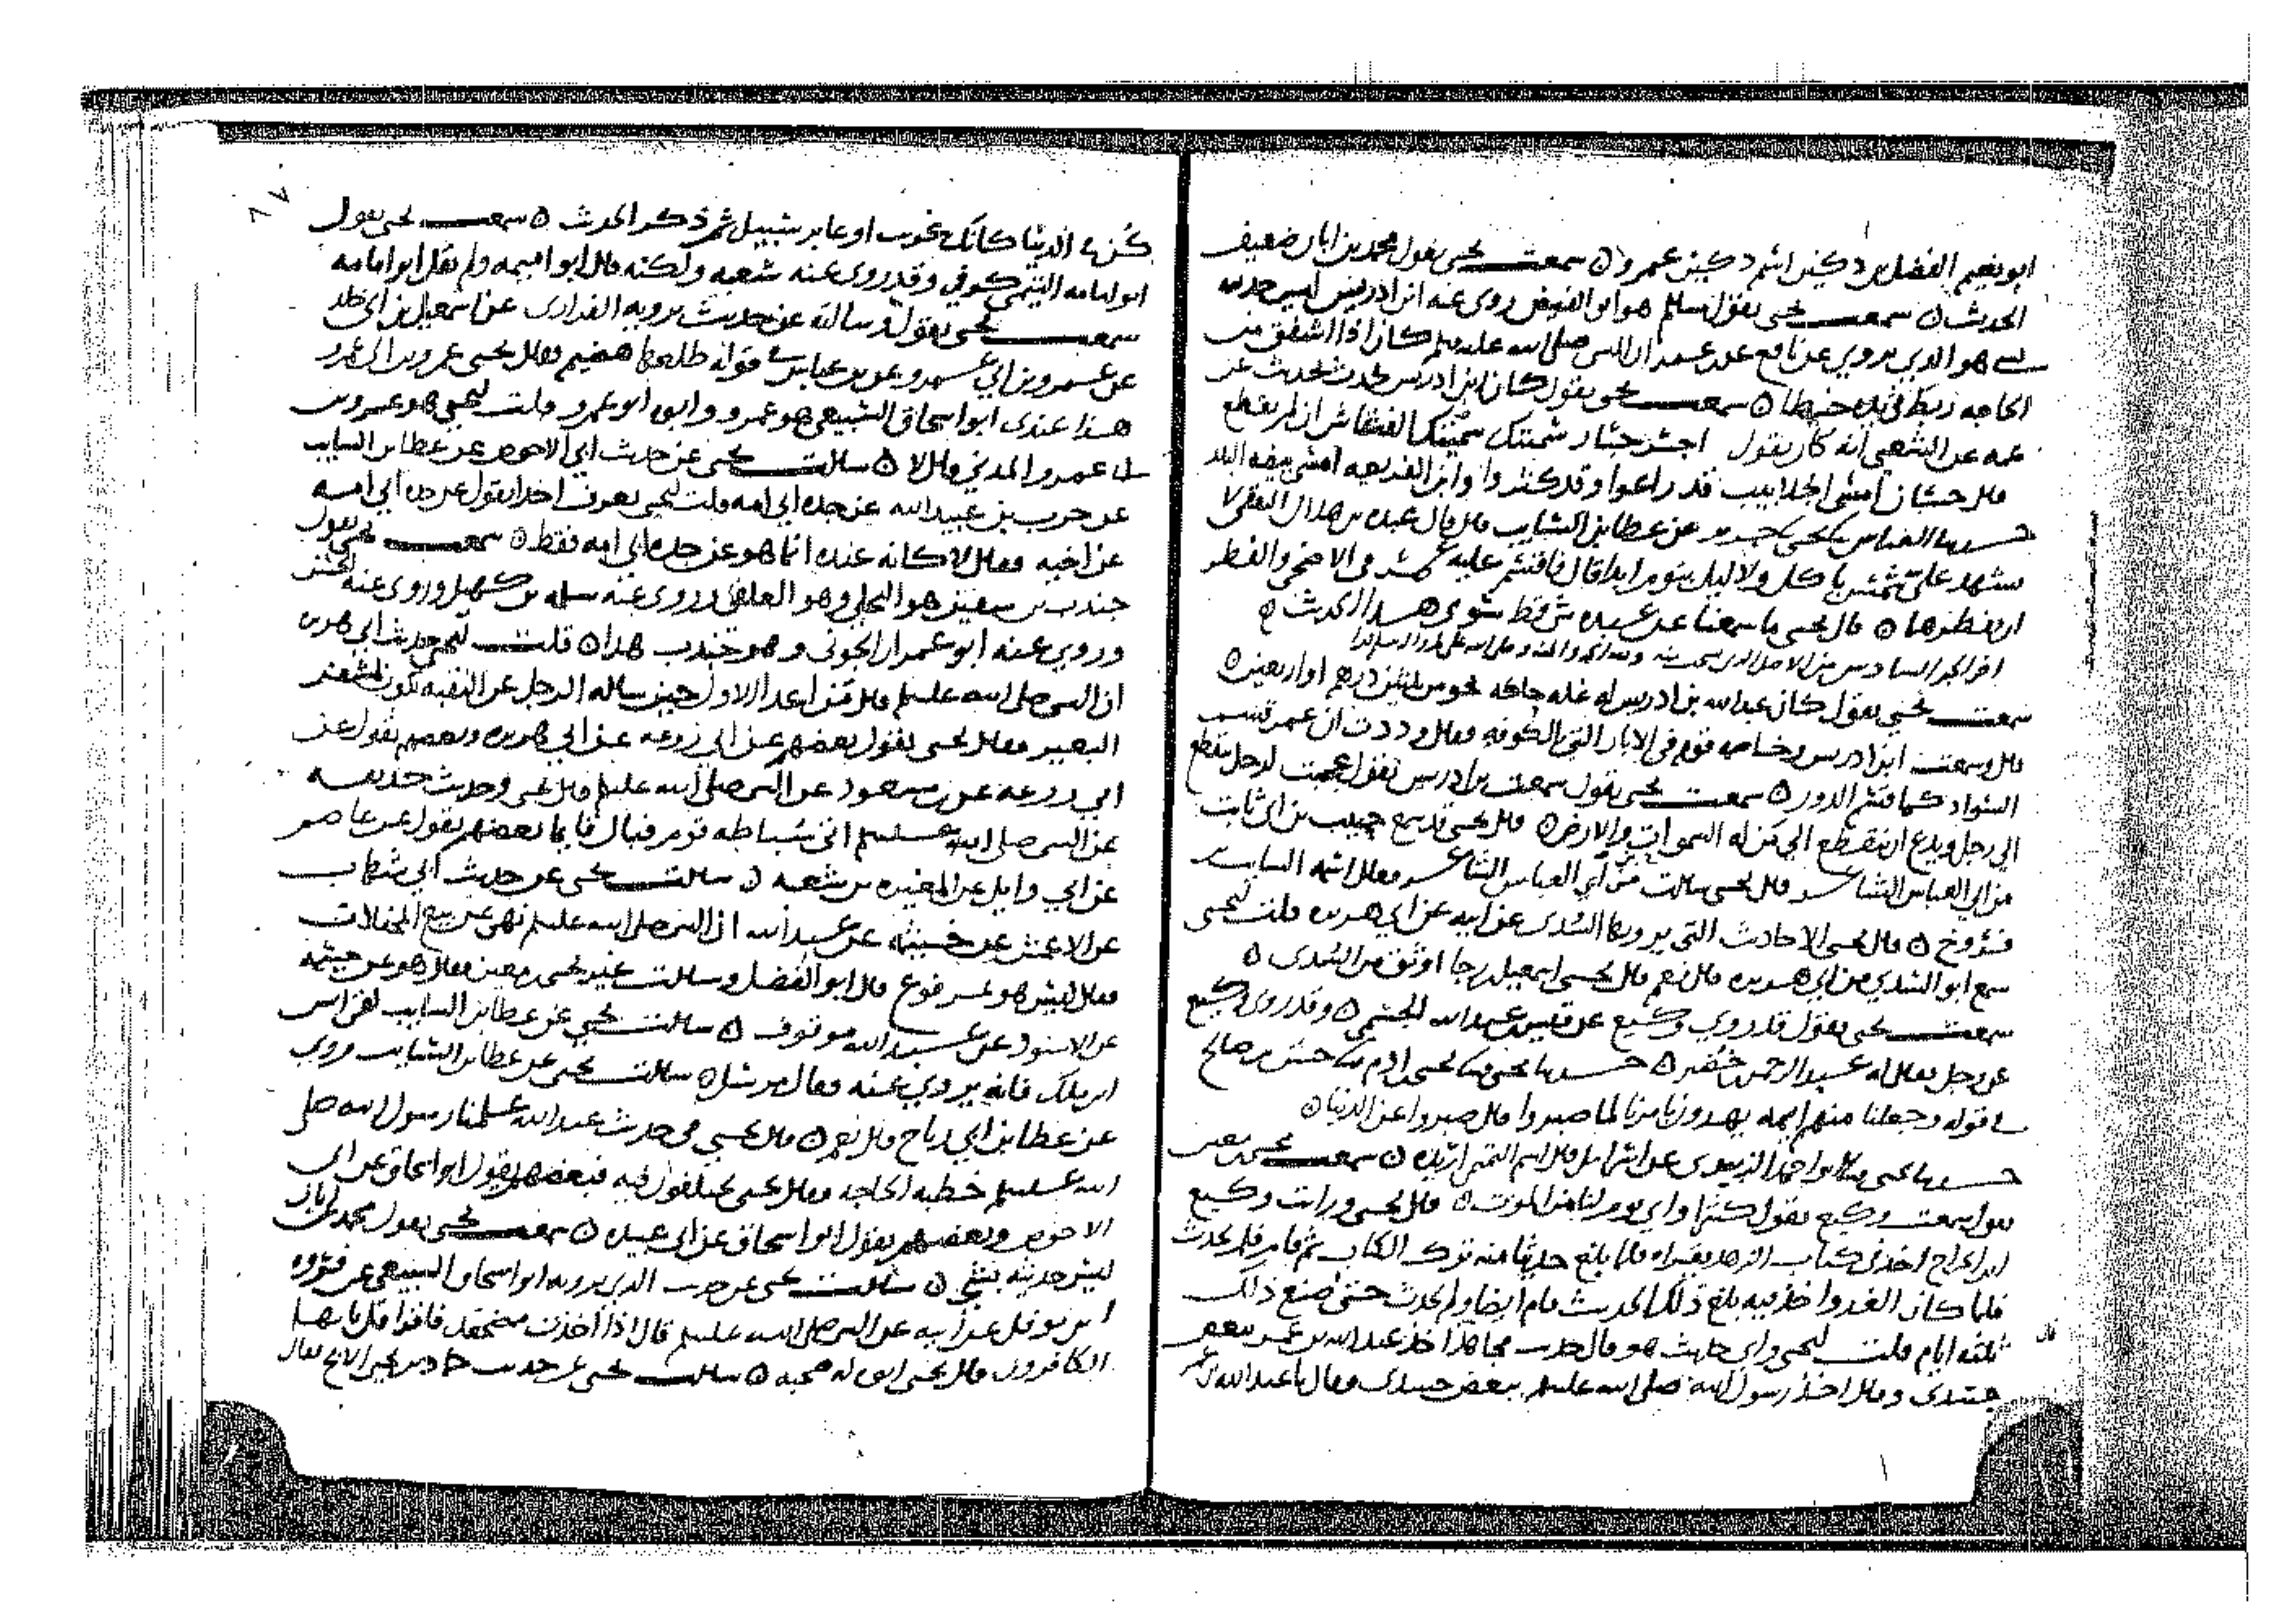 ابو نعيم الفضل بن دكين اسم دكين عمرو ٥ سمعت يحيى يقول محمد بن ابان ضعيف
الحديث ٥ سمعت يحيى يقول سالم هو ابو الفيض روى عنه ابن ادريس ليس حديثه
هو الذي يروي عن نافع عن بن عمر ان النبي صلى الله عليه وسلم كان اذا اشفق من
الحاجه ربط في يده خيطا ٥ سمعت يحيى يقول كان ابن ادريس يحدث بحديث عن
عمه عن الشعبي انه كان يقول
قال حسان امسى الجلابيب قد راعوا وقد كثروا وابن الفريعه امسى بيضه البلد
حدثنا العباس يحيى جرير عن عطا بن السايب قال قال عبده بن هلال الثقفي لا
يشهد علي شمس باكل ولا ليل بنوم ابدا قال فاقسم عليه عمر في الاضحى والفطر
ان يفطرهما ٥ قال يحيى ما سمعنا عن عبده شي قط سوى هذا الحديث ٥
اخر الجزو السادس من الاصل
سمعت يحيى يقول كان عبد الله بن ادريس له غله حاكه نحو من ثلثين درهم او اربعين ٥
قال وسمعت ابن ادريس وخاصمه قوم في الابار التي بالكوفه فقال وددت ان عمر قسم
السواد كما قسم الدور ٥ سمعت يحيى يقول سمعت بن ادريس يقول عجبت لرجل ينقطع
الى رجل ويدع ان ينقطع الى من له السموات والارض ٥ قال يحيى قد سمع حبيب بن ابي ثابت
من ابي العباس الشاعر قال يحيى سالت من ابي العباس الشاعر فقال اسمه السايب بن
فروخ ٥ قال يحيى الاحاديث التي يرويها السدي عن ابيه عن ابي هريره قلت ليحيى
سمع ابو السدي من ابي هريره قال نعم قال يحيى اسمعيل بن رجا اوثق من السدي ٥
سمعت يحيى يقول قد روى وكيع عن قيس بن عبد الله الجشمي ٥ وقد روى وكيع
عن رجل يقال له عبد الرحمن بن خضير ٥ حدثنا يحيى يحيى بن ادم حسن بن صالح
في قوله وجعلنا منهم ايمه يهدون بامرنا لما صبروا قال صبروا عن الدنيا ٥
حدثنا يحيى ابو احمد الزبيري عن اسرايل قال اسم التميمي اربده ٥ سمعت يحيى بن معين
يقول سمعت وكيع يقول كثيرا واي يوم لنا من الموت ٥ قال يحيى ورايت وكيع
ابن الجراح اخذ في كتاب الزهد يقراه فلما بلغ حديثا منه ترك الكتاب ثم قام فلم يحدث
فلما كان الغد واخذ فيه بلغ ذلك الحديث قام ايضا ولم يحدث حتى صنع ذلك
ثلثه ايام قلت ليحيى واي حديث هو قال حديث مجاهد اخذ عبد الله بن عمر ببعض
جسدي وقال اخذ رسول الله صلى الله عليه وسلم ببعض جسدي وقال يا عبد الله بن عمر
كن في الدنيا كانك غريب او عابر سبيل ثم ذكر الحديث ٥ سمعت يحيى يقول
ابو امامه التيمي كوفي وقد روى عنه شعبه ولكنه قال ابو اميمه ولم يقل ابو امامه
سمعت يحيى يقول وسالته عن حديث يرويه الفزاري عن اسمعيل بن ابي خالد
عن عمرو بن ابي عمرو عن بن عباس في قوله طلعها هضيم فقال يحيى عمرو بن ابي عمرو
هذا عندي ابو اسحاق السبيعي هو عمرو وابوه ابو عمرو قلت ليحيى هو عمرو بن
ابي عمرو المديني قال لا ٥ سالت يحيى عن حديث ابي الاحوص عن عطا بن السايب
عن حرب بن عبيد الله عن جده ابي امه قلت ليحيى تعرف احدا يقول عن جده ابي اميه
عن اخيه فقال لا كانه عنده انما هو عن جده ابي امه فقط ٥ سمعت يحيى يقول
جندب بن سفين هو البجلي وهو العلقي روى عنه سلمه بن كهيل وروى عنه الحسن
وروى عنه ابو عمران الجوني وهو جندب هذا ٥ قلت ليحيى حديث ابي هريره
ان النبي صلى الله عليه وسلم قال فمن اعدا الاول حين ساله الرجل عن النقبه تكون بمشفر
البعير فقال يحيى يقول بعضهم عن ابي زرعه عن ابي هريره وبعضهم يقول عن
ابي زرعه عن بن مسعود عن النبي صلى الله عليه وسلم قال يحيى وحديث حذيفه
عن النبي صلى الله عليه وسلم اتى سباطه قوم فبال قايما بعضهم يقول عن عاصم
عن ابي وايل عن المغيره بن شعبه ٥ سالت يحيى عن حديث ابي شهاب
عن الاعمش عن خيثمه عن عبد الله ان النبي صلى الله عليه وسلم نهى عن بيع المحفلات
فقال ليس هو مرفوع قال ابو الفضل وسالت غير يحيى بن معين فقال هو عن خيثمه
عن الاسود عن عبد الله موقوف ٥ سالت يحيى عن عطا بن السايب لقي انس
ابن ملك فانه يروي عنه فقال مرسل ٥ سالت يحيى عن عطا بن السايب وروى
عن عطا بن ابي رباح قال نعم ٥ قال يحيى في حديث عبد الله علمنا رسول الله صلى
الله عليه وسلم خطبه الحاجه فقال يحيى يختلفون فيه فبعضهم يقول ابو اسحاق عن ابي
الاحوص وبعضهم يقول ابو اسحاق عن ابي عبيده ٥ سمعت يحيى يقول محمد بن ابان
ليس حديثه بشي ٥ سالت يحيى عن حديث الذي يرويه ابو اسحاق السبيعي عن فروه
ابن نوفل عن ابيه عن النبي صلى الله عليه وسلم قال اذا اخذت مضجعك فاقرا قل يا يها
الكافرون قال يحيى ابوه له صحبه ٥ سالت يحيى عن حديث حماد بن يحيى الابح فقال